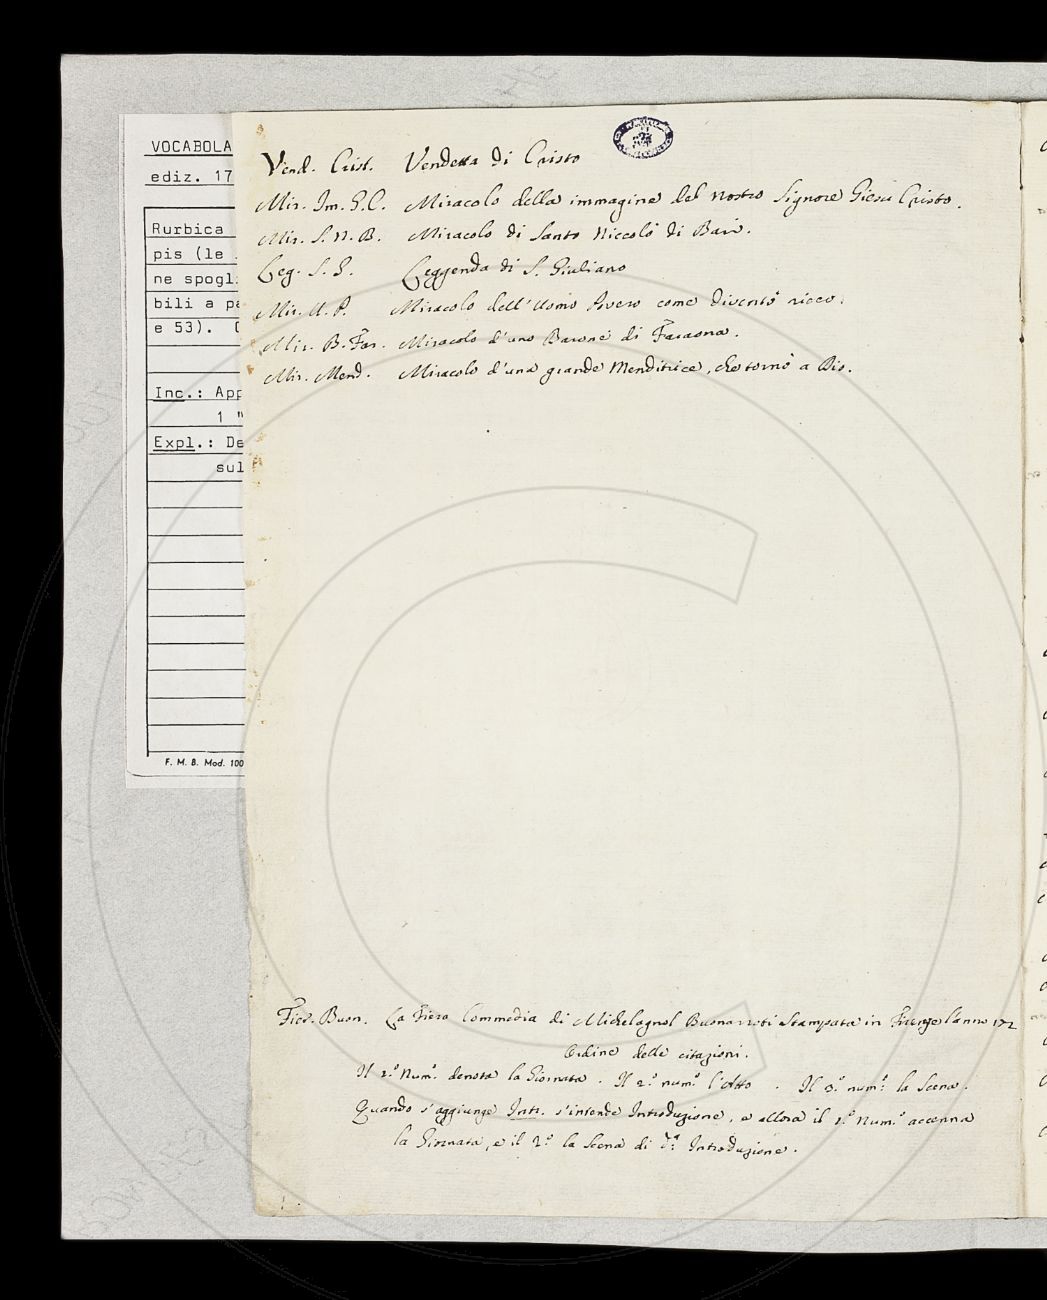 VOCABOLA
ediz. 17
Rurbica
pis (le
ne spogl
bili a pa
e 53).
Inc.: App
1 "
Expl.: De
sul
F. M. B. Mod. 100
Vend. Crist. Vendetta di Cristo
Mir. Im. G. C. Miracolo della immagine del nostro Signore Giesù Cristo.
Mir. S. N. B. Miracolo di Santo Niccolò di Bari.
Leg. S. G. Leggenda di S. Giuliano
Mir. U. P. Miracolo dell'Uomo Povero come diventò ricco.
Mir. B. Far. Miracolo d'uno Barone di Faraona.
Mir. Mend. Miracolo d'una grande Menditrice, che tornò a Dio.
Fier. Buon. La Fiera Commedia di Michelagnol Buonarroti Stampata in Firenze l'anno 172
Ordine delle citazioni.
Il 1.º Num.º denota la Giornata. Il 2.º num.º l'Atto. Il 3.º num.º la Scena.
Quando s'aggiunge Intr. s'intende Introduzione, e allora il 1.º Num.º accenna
la Giornata, e il 2.º la Scena di d.ª Introduzione.